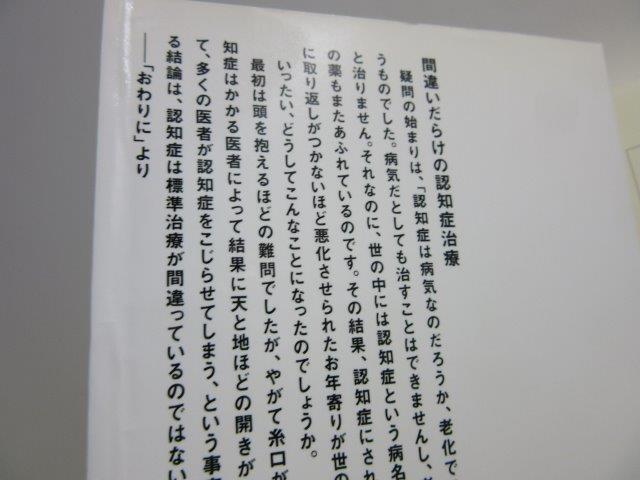 間違いだらけの認知症治療
疑問の始まりは、「認知症は病気なのだろうか、老化で
うものでした。病気だとしても治すことはできませんし、老
と治りません。それなのに、世の中には認知症という病名
の薬もまたあふれているのです。その結果、認知症にされ
に取り返しがつかないほど悪化させられたお年寄りが世の
いったい、どうしてこんなことになったのでしょうか。
最初は頭を抱えるほどの難問でしたが、やがて糸口が
知症はかかる医者によって結果に天と地ほどの開きが
て、多くの医者が認知症をこじらせてしまう、という事
る結論は、認知症は標準治療が間違っているのではない
――「おわりに」より